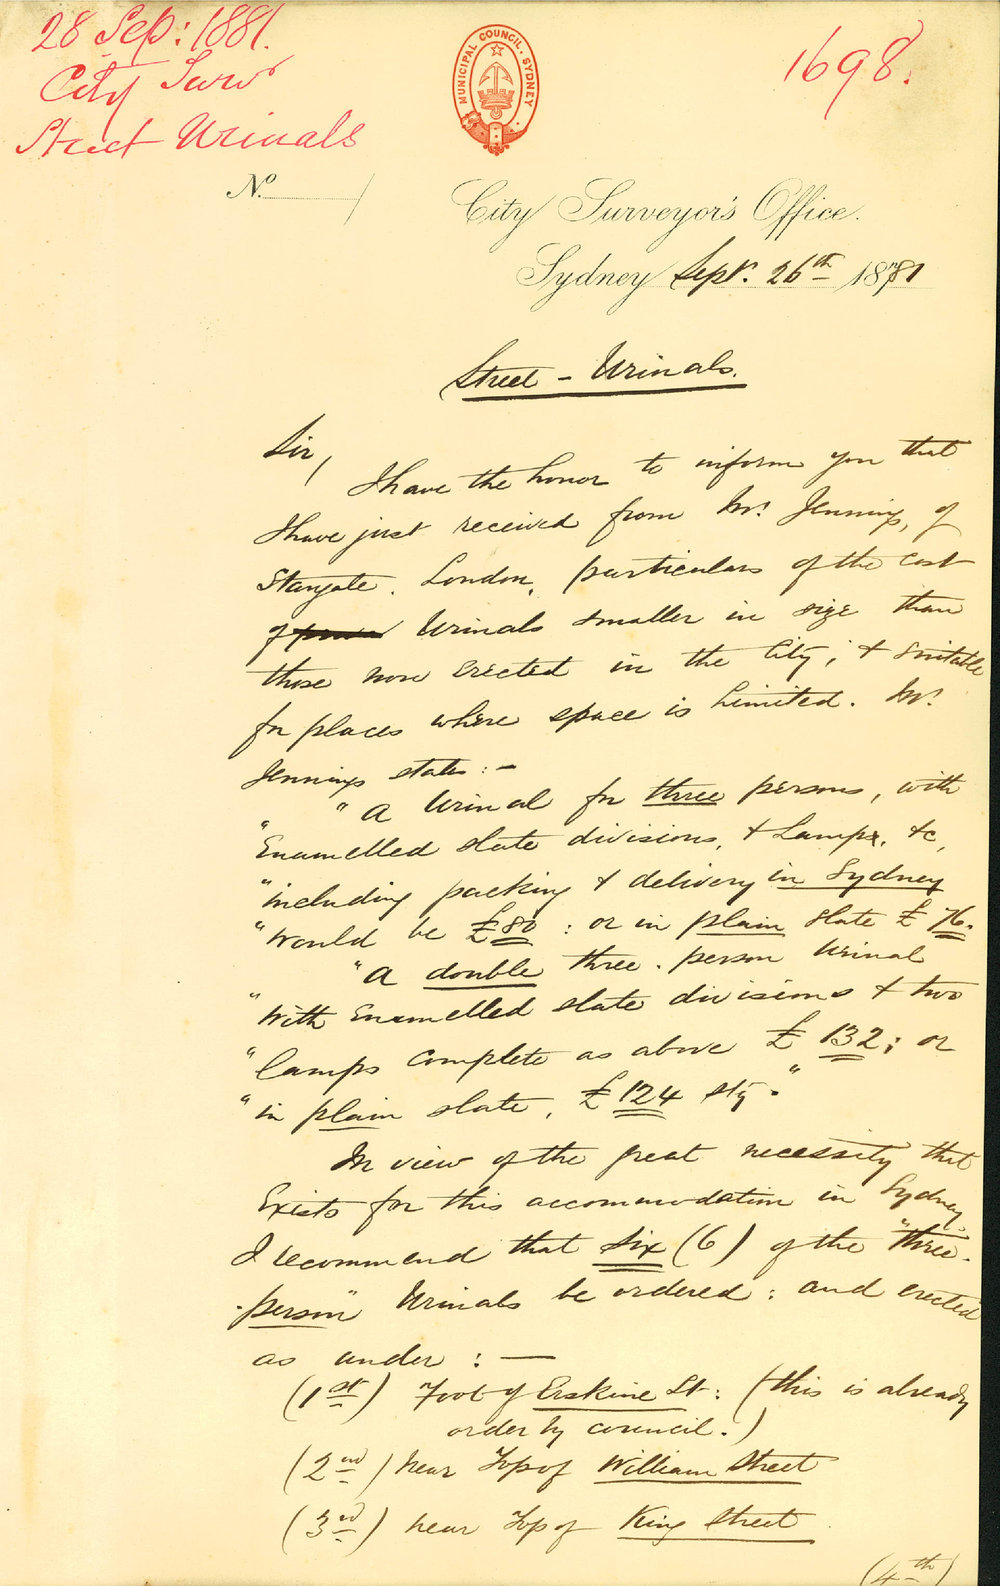 28 Sep: 1881.
City Surv^r
Street Urinals
1698.
MUNICIPAL COUNCIL. SYDNEY
No.
City Surveyor's Office.
Sydney Sept. 26th 1881
Street - Urinals.
Sir,
I have the honor to inform you that
I have just received from Mr. Jennings, of
Stangate. London, particulars of the cost
of Urinals smaller in size than
those now erected in the City; & suitable
for places where space is limited. Mr.
Jennings states :-
"A Urinal for three persons, with
"Enamelled slate divisions, & Lamps, &c,
"including packing & delivery in Sydney
"Would be £80 : or in plain slate £76.
"A double three-person Urinal
"With Enamelled slate divisions & two
"lamps complete as above £132; or
"in plain slate, £124 Stg."
In view of the great necessity that
Exists for this accommodation in Sydney,
I recommend that Six (6) of the "three-
-person" Urinals be ordered : and erected
as under : —
(1st) Foot of Erskine St: (this is already
order by council.)
(2nd) near Top of William Street
(3rd) near Top of King Street
(4th)